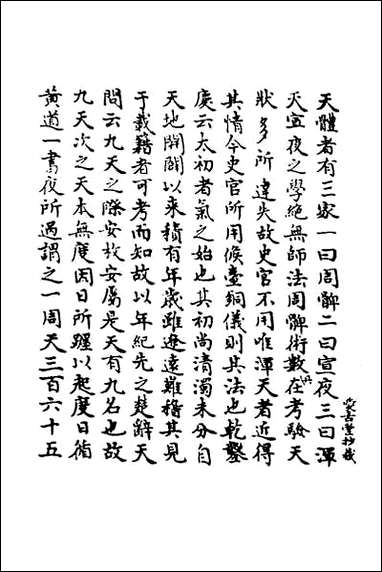 天體者有三家一曰周髀二曰宣夜三曰渾
天宣夜之學絶無師法周髀術數在考驗天
狀多所違失故史官不用唯渾天者近得
其情今史官所用候臺銅儀則其法也乾鑿
度云太初者氣之始也其初尚清濁未分自
天地開闢以来積有年歲雖遼遠難稽其見
于載籍者可考而知故以年紀先之楚辭天
問云九天之際安放安屬是天有九名也故
九天次之天本無度因日所躔以起度日循
黄道一晝夜所過謂之一周天三百六十五